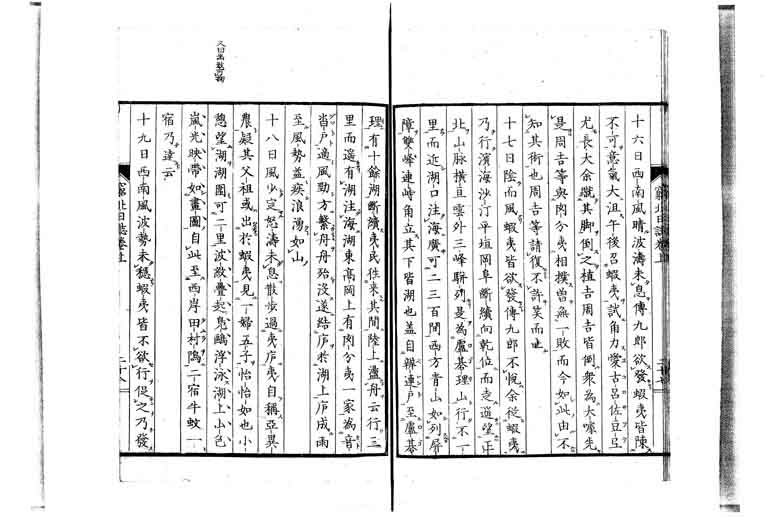 十六日西南風晴波濤未息傳九郎欲發蝦夷皆陳
不可意氣大沮午後召蝦夷試角力愛古呂佐豆
尤長大余蹴其脚倒之植吉周吉皆倒衆為大嚎先
是周吉等與肉分夷相撲曾無一敗而今如此由不
知其術也周吉等請復不許笑而止
十七日陰而風蝦夷皆欲發傳九郎不悅余從蝦夷
乃行濱海沙汀平垣岡阜斷續向乾位而走遥望
北山脉橫亘雲外三峰駢列是為盧碁理山行不一
里而近湖口注海廣可二三百間西方青山如列屏
障雙峰連峙角立其下皆湖也蓋自辧連戸至盧碁
理有十餘湖斷續夷民往来其間陸上盪舟云行三
里而遥有湖注海湖東高岡上有肉分夷一家為音
沓戸適風勁方繫舟舟殆沒遂結庐於湖上庐成雨
至風勢益疾浪湧如山
十八日風少定怒濤未息散步過夷庐夷自稱亞異
農疑其父祖或出於蝦夷見一婦五子怡怡如也小
憩望湖湖圍可二里波皺疊起鳧鷗浮泳湖上山色
嵐光映帶如畫圖自此至西岸田村鴟二宿牛蚊一
宿乃達云
十九日西南風波勢未穏蝦夷皆不欲行促之乃發
窮北日誌卷上
窮北日誌卷上
二十八